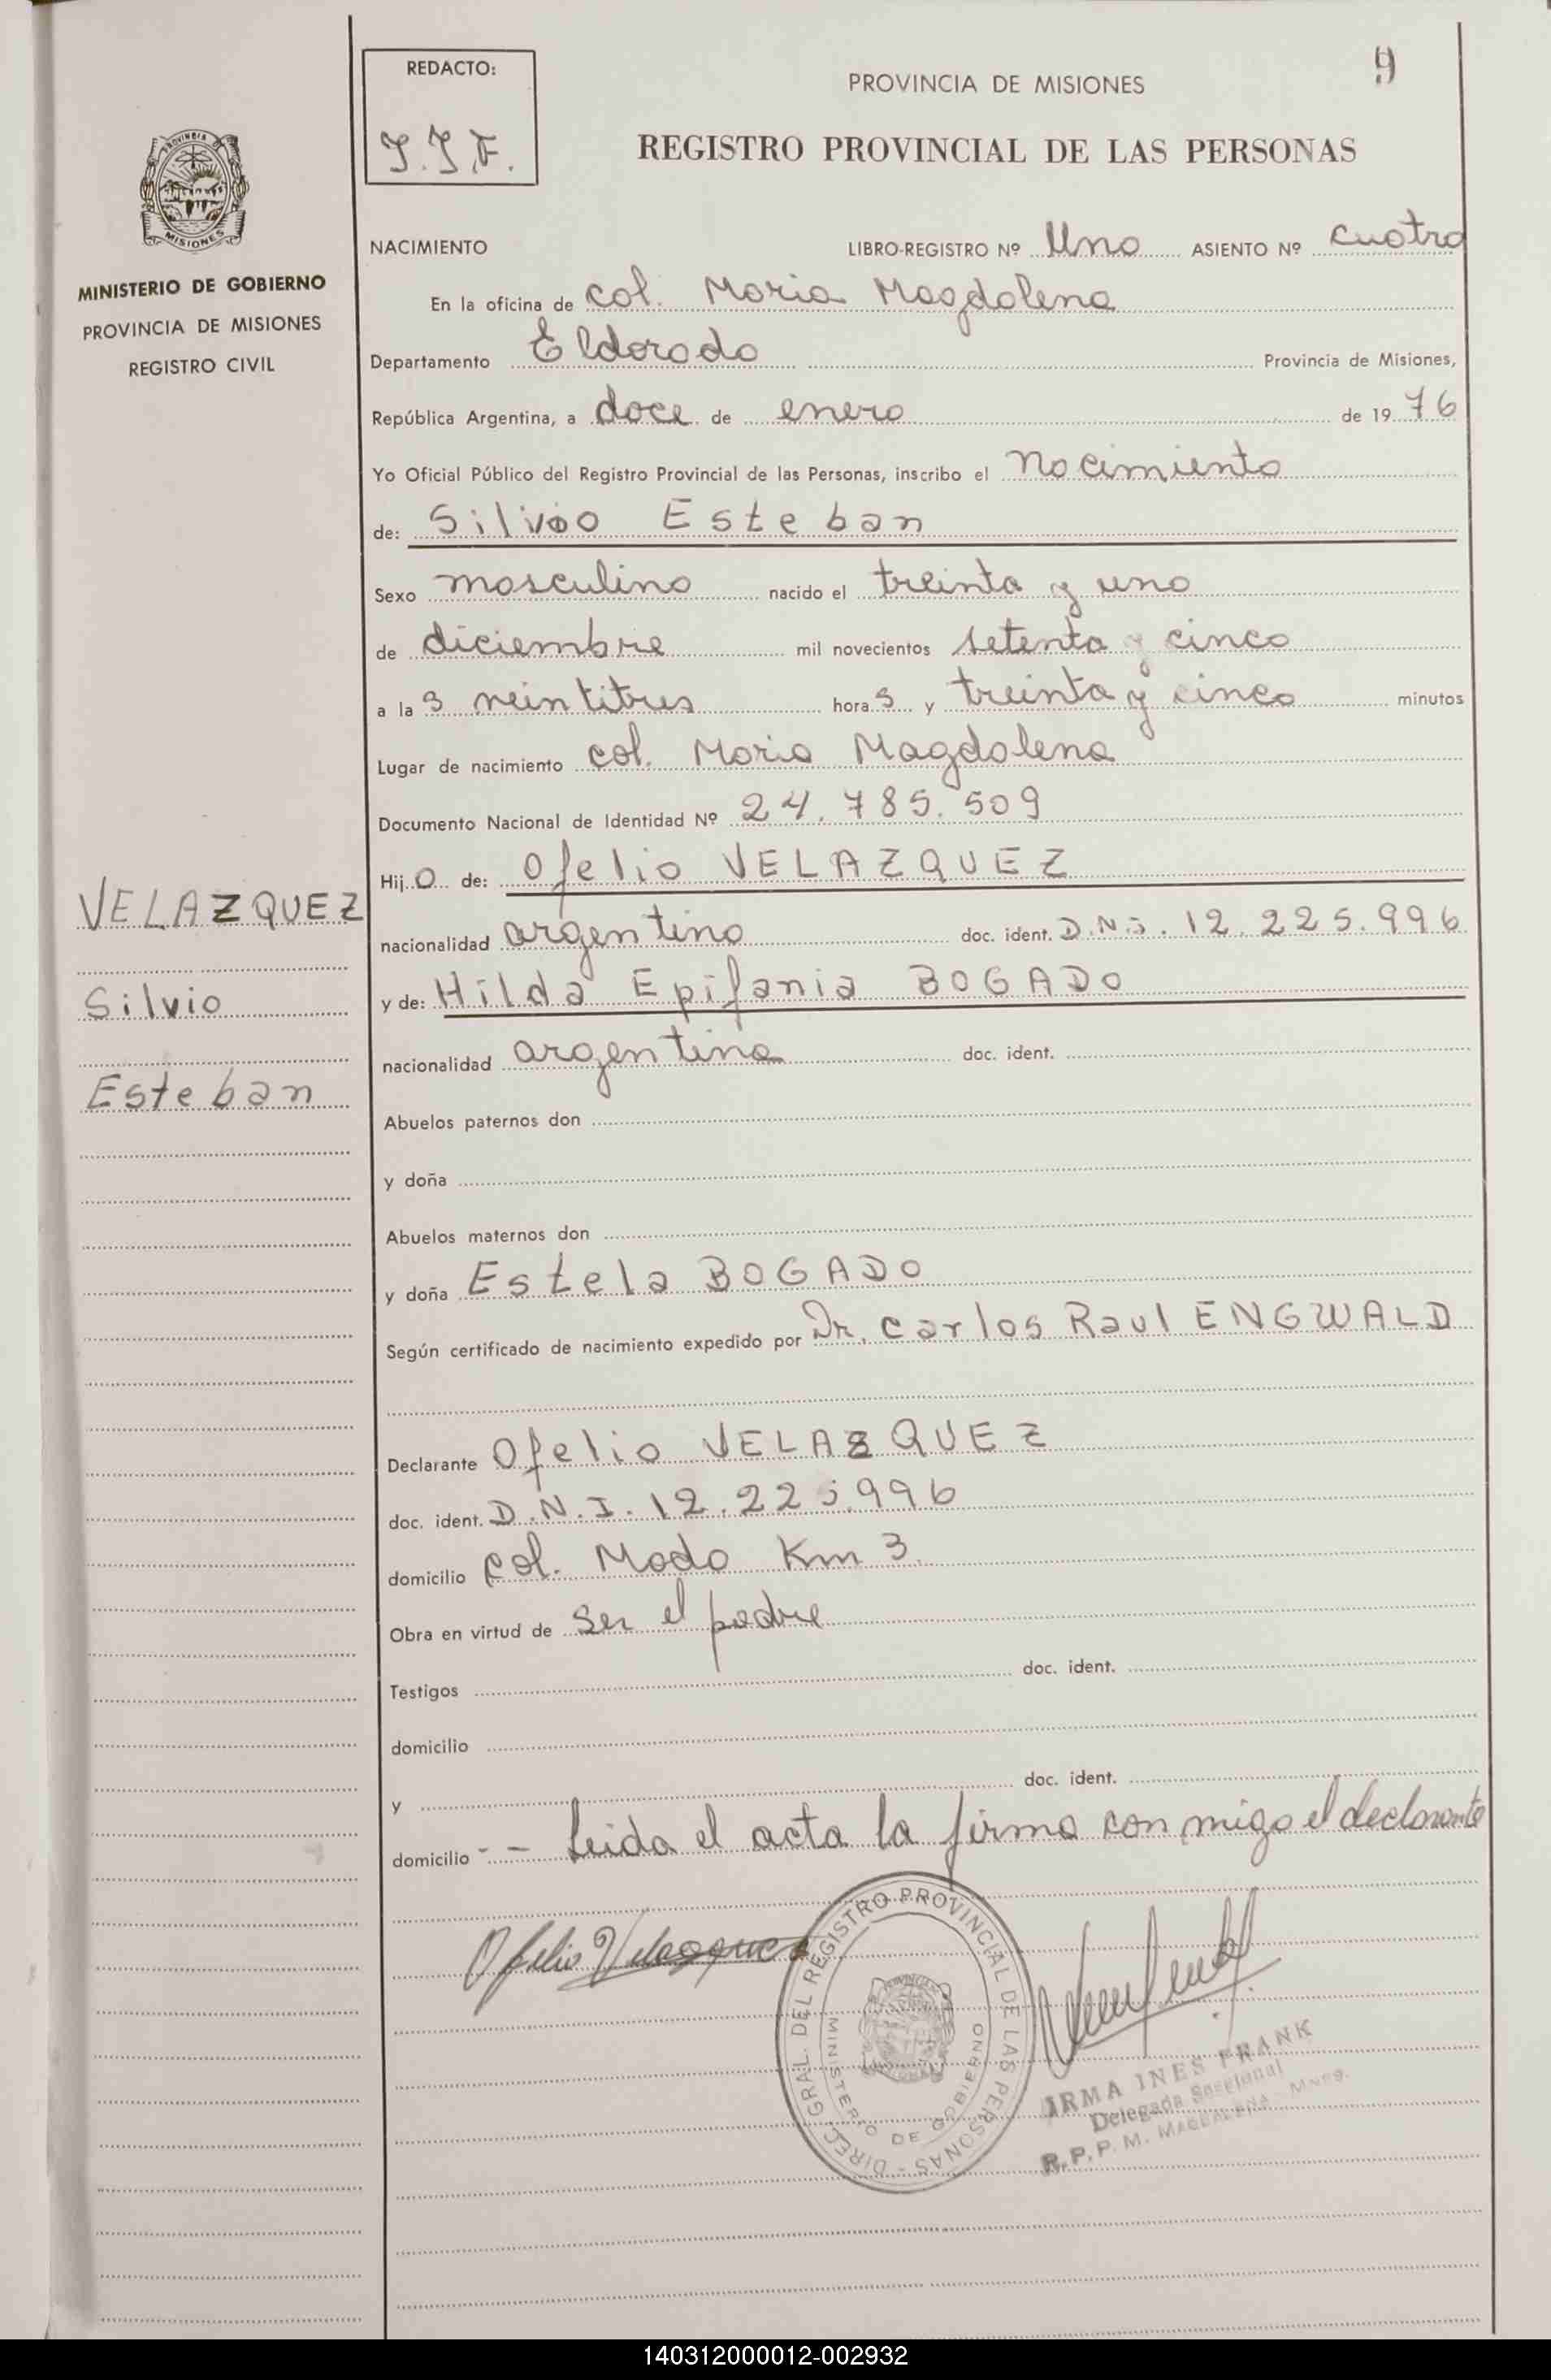 REDACTO:
PROVINCIA DE MISIONES
9
REGISTRO PROVINCIAL DE LAS PERSONAS
PROVINCIA
MISIONES
MINISTERIO DE GOBIERNO
PROVINCIA DE MISIONES
REGISTRO CIVIL
NACIMIENTO LIBRO-REGISTRO Nº Uno ASIENTO Nº cuatro
En la oficina de col. Maria Magdalena
Departamento Eldorado Provincia de Misiones,
República Argentina, a doce de enero de 1976
Yo Oficial Público del Registro Provincial de las Personas, inscribo el nacimiento
de: Silvio Esteban
Sexo masculino nacido el treinta y uno
de diciembre mil novecientos setenta y cinco
a las veintitres horas y treinta y cinco minutos
Lugar de nacimiento col. Maria Magdalena
Documento Nacional de Identidad Nº 24.785.509
Hijo de: Ofelio VELAZQUEZ
VELAZQUEZ
nacionalidad argentino doc. ident. D.N.I. 12.225.996
y de: Hilda Epifania BOGADO
Silvio
nacionalidad argentina doc. ident.
Esteban
Abuelos paternos don
y doña
Abuelos maternos don
y doña Estela BOGADO
Según certificado de nacimiento expedido por Dr. Carlos Raul ENGWALD
Declarante Ofelio VELAZQUEZ
doc. ident. D.N.I. 12.225.996
domicilio col. Mado Km 3.
Obra en virtud de ser el padre
Testigos doc. ident.
domicilio
y doc. ident.
domicilio - - Leida el acta la firma con migo el declarante
Ofelio Velazquez
DIREC. GRAL. DEL REGISTRO PROVINCIAL DE LAS PERSONAS -
MINISTERIO DE GOBIERNO
IRMA INES FRANK
Delegada Seccional
R.P.P. M. MAGDALENA - MNES.
140312000012-002932